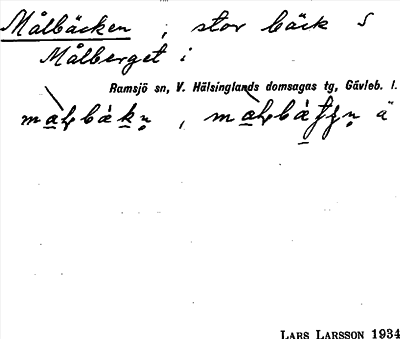 Målbäcken, stor bäck S
Målberget i
Ramsjö sn, V. Hälsinglands domsagas tg, Gävleb. l.
ä
LARS LARSSON 1934